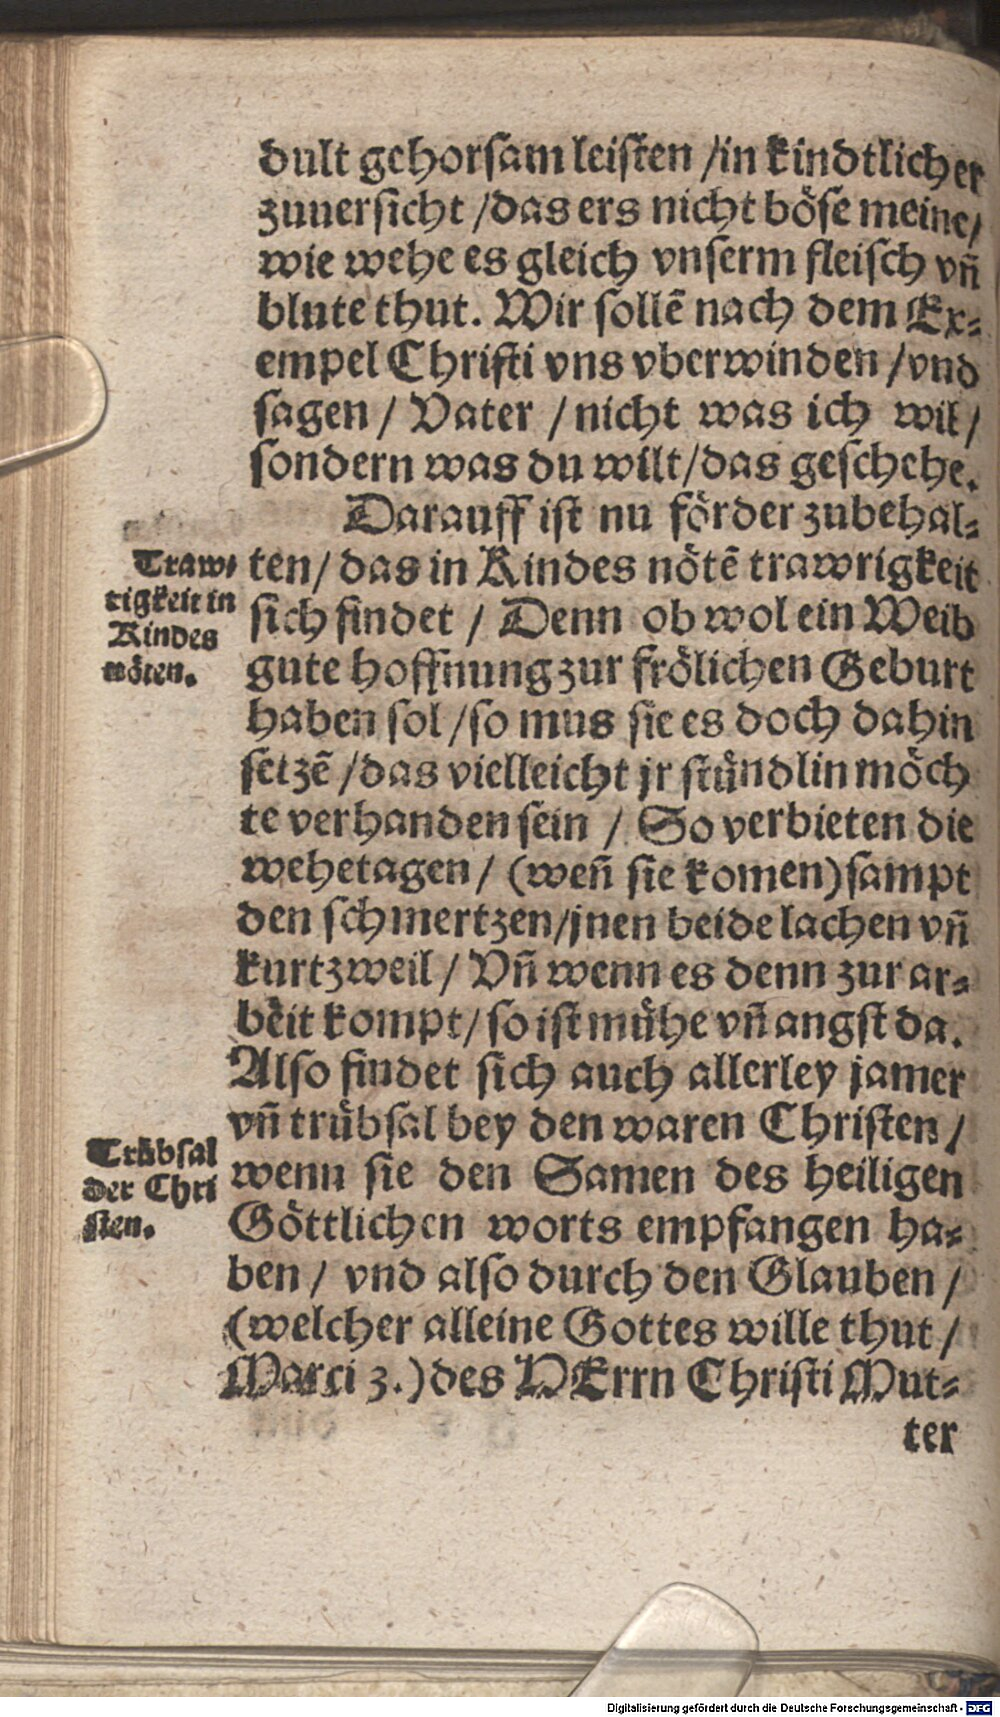 dult gehorsam leisten /in kindtlicher
zuuersicht /das ers nicht böse meine/
wie wehe es gleich vnserm fleisch vn̄
blute thut. Wir sollē nach dem Ex⸗
empel Christi vns vberwinden /vnd
sagen / Vater /nicht was ich wil/
sondern was du wilt/das geschehe.
Darauff ist nu förder zubehal⸗
Traw⸗
rigkeit in
Kindes
nöten.
ten/ das in Kindes nötē trawrigkeit
sich findet / Denn ob wol ein Weib
gute hoffnung zur frölichen Geburt
haben sol /so mus sie es doch dahin
setzē /das vielleicht jr stündlin möch
te verhanden sein / So verbieten die
wehetagen/ (wen̄ sie komen) sampt
den schmertzen/jnen beide lachen vn̄
kurtzweil / Vn̄ wenn es denn zur ar⸗
beit kompt/ so ist mühe vn̄ angst da.
Also findet sich auch allerley jamer
vn̄ trübsal bey den waren Christen /
Trübsal
der Chri
sten.
wenn sie den Samen des heiligen
Göttlichen worts empfangen ha⸗
ben / vnd also durch den Glauben /
(welcher alleine Gottes wille thut /
Marci 3.) des HErrn Christi Mut⸗
ter
Digitalisierung gefördert durch die Deutsche Forschungsgemeinschaft - DFG